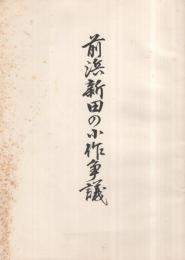 前浜新田の小作争議